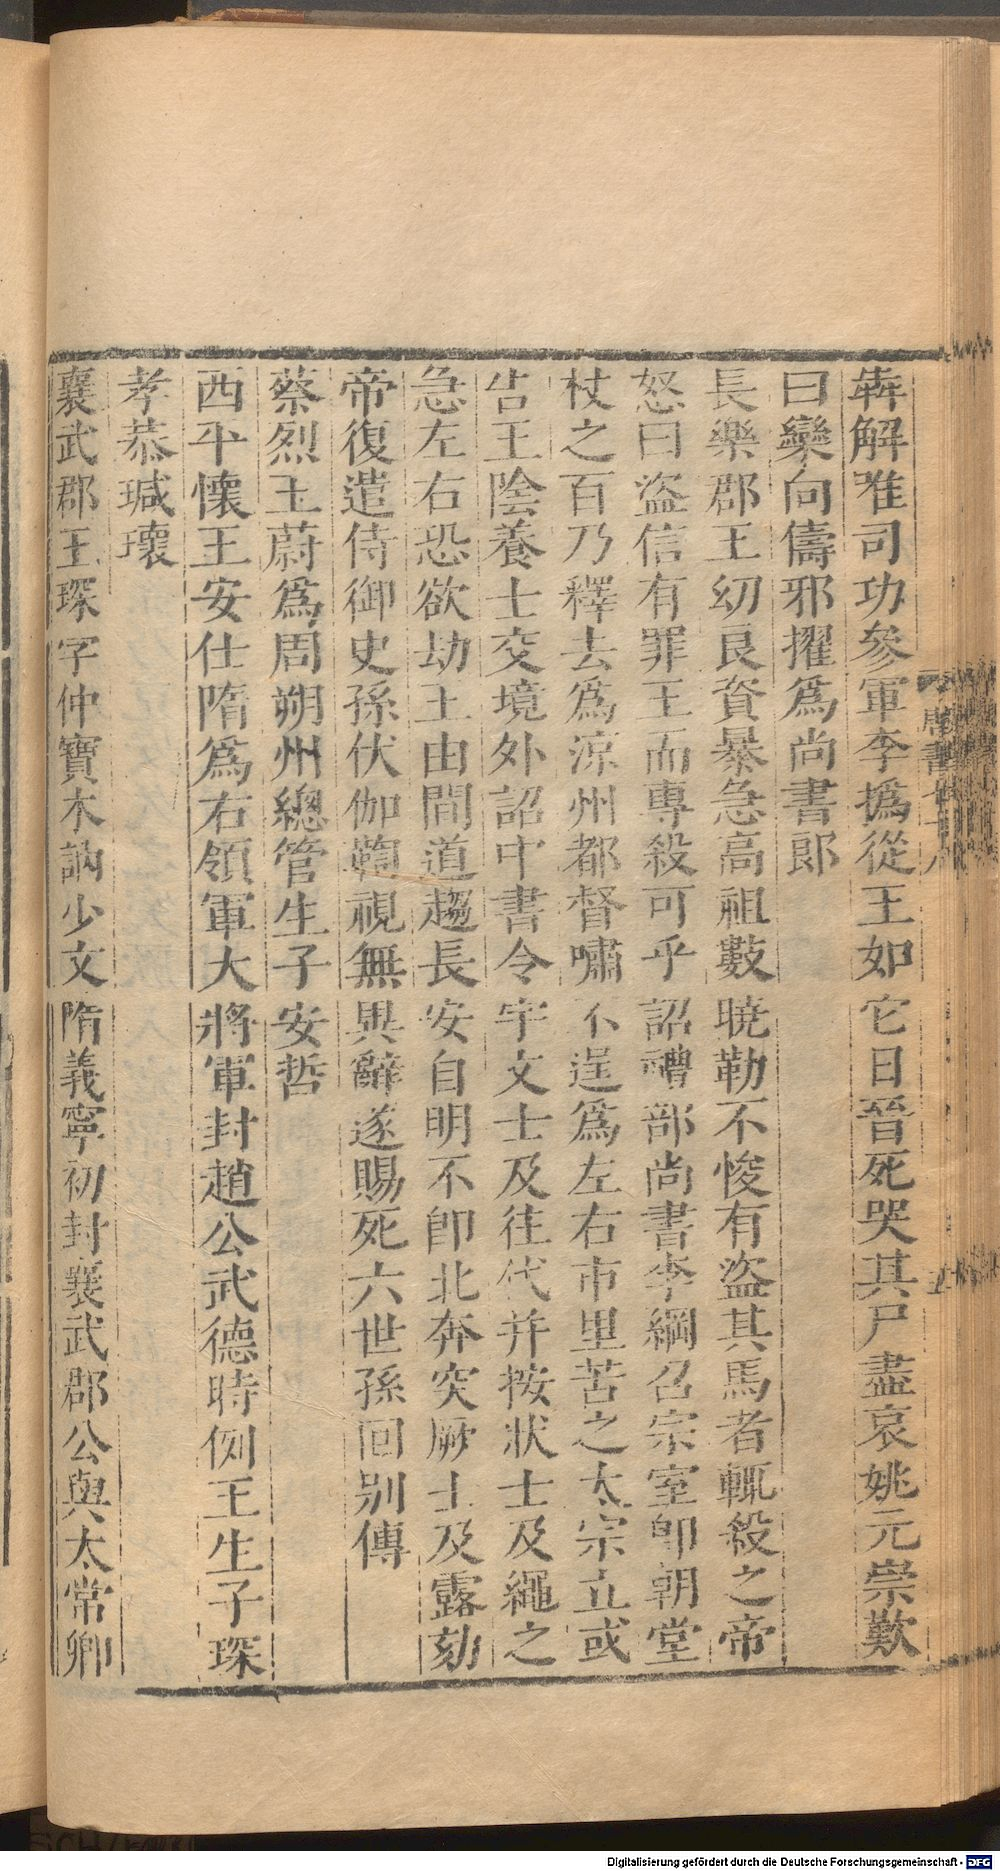 犇解唯司功參軍李撝從王如它日晉死哭其尸盡哀姚元崇歎
曰欒向儔邪擢爲尚書郎
長樂郡王幼良資暴急高祖數曉勒不悛有盜其馬者輒殺之帝
怒曰盜信有罪王而專殺可乎詔禮部尚書李綱召宗室卽朝堂
杖之百乃釋去爲涼州都督嘯不逞爲左右市里苦之太宗立或
告王陰養士交境外詔中書令宇文士及往代并按狀士及繩之
急左右恐欲劫王由間道趨長安自明不卽北奔突厥士及露劾
帝復遣侍御史孫伏伽鞫視無異辭遂賜死六世孫回别傳
蔡烈王蔚爲周朔州總管生子安哲
西平懷王安仕隋爲右領軍大將軍封趙公武德時例王生子琛
孝恭瑊瓌
襄武郡王琛字仲寶木訥少文隋義寧初封襄武郡公與太常卿
唐書七十八
Digitalisierung gefördert durch die Deutsche Forschungsgemeinschaft - DFG